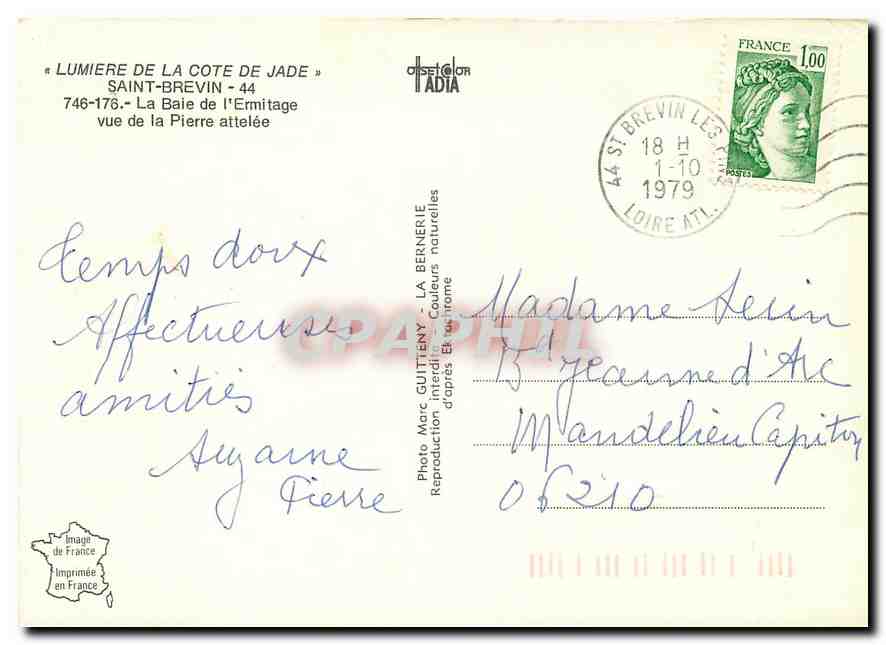 « LUMIERE DE LA COTE DE JADE »
SAINT-BREVIN - 44
746-176.- La Baie de l'Ermitage
vue de la Pierre attelée
OFFSET COLOR
ADIA
FRANCE 1,00
POSTES
44 ST BREVIN LES PINS
18 H
1-10
1979
LOIRE ATL.
temps doux
Affectueuses
amitiés
Suzanne
Pierre
Photo Marc GUITTENY - LA BERNERIE
Reproduction interdite - Couleurs naturelles
d'après Ektachrome
CPAPHIL
Madame
Bd Jeanne d'Arc
Mandelieu Capitou
06210
Image
de France
Imprimée
en France